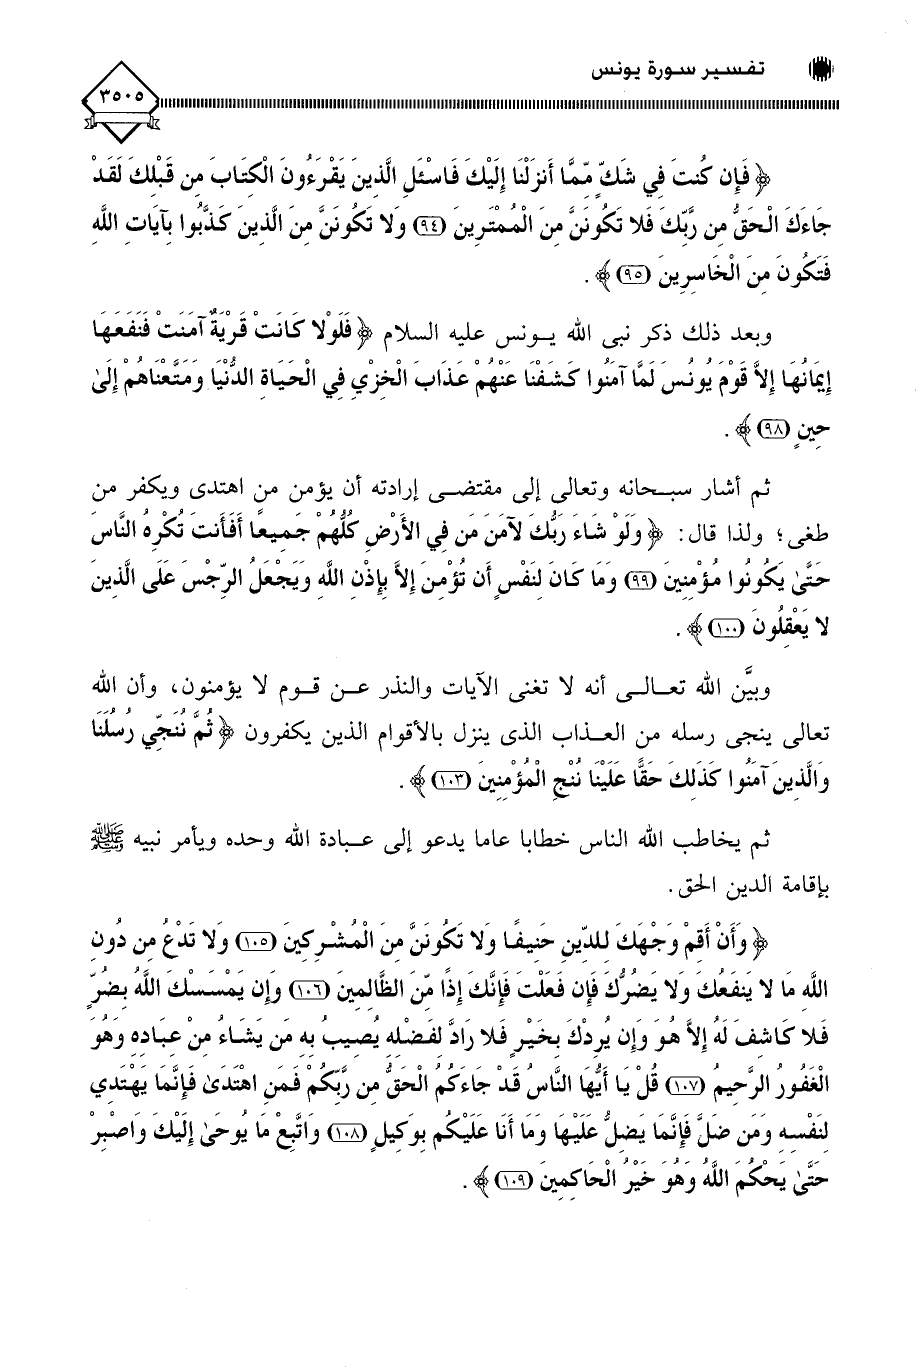 تفسير سورة يونس
٣٥٠٥
﴿ فَإِن كُنتَ فِي شَكٍّ مِّمَّا أَنزَلْنَا إِلَيْكَ فَاسْئَلِ الَّذِينَ يَقْرَءُونَ الْكِتَابَ مِن قَبْلِكَ لَقَدْ
جَاءَكَ الْحَقُّ مِن رَّبِّكَ فَلا تَكُونَنَّ مِنَ الْمُمْتَرِينَ (٩٤) وَلا تَكُونَنَّ مِنَ الَّذِينَ كَذَّبُوا بِآيَاتِ اللَّه
فَتَكُونَ مِنَ الْخَاسِرِينَ (٩٥) ﴾ .
وبعد ذلك ذكر نبى الله يونس عليه السلام ﴿ فَلَوْلا كَانَتْ قَرْيَةٌ آمَنَتْ فَنَفَعَهَا
إِيمَانُهَا إِلاَّ قَوْمَ يُونُسَ لَمَّا آمَنُوا كَشَفْنَا عَنْهُمْ عَذَابَ الْخِزْيِ فِي الْحَيَاةِ الدُّنْيَا وَمَتَّعْنَاهُمْ إِلَىٰ
حِينٍ (٩٨) ﴾ .
ثم أشار سبحانه وتعالى إلى مقتضى إرادته أن يؤمن من اهتدى ويكفر من
طغى؛ ولذا قال: ﴿ وَلَوْ شَاءَ رَبُّكَ لآمَنَ مَن فِي الأَرْضِ كُلُّهُمْ جَمِيعًا أَفَأَنتَ تُكْرِهُ النَّاسَ
حَتَّىٰ يَكُونُوا مُؤْمِنِينَ (٩٩) وَمَا كَانَ لِنَفْسٍ أَن تُؤْمِنَ إِلاَّ بِإِذْنِ اللَّهِ وَيَجْعَلُ الرِّجْسَ عَلَى الَّذِينَ
لا يَعْقِلُونَ (١٠٠) ﴾ .
وبيَّن الله تعالى أنه لا تغنى الآيات والنذر عن قوم لا يؤمنون، وأن الله
تعالى ينجى رسله من العذاب الذى ينزل بالأقوام الذين يكفرون ﴿ ثُمَّ نُنَجِّي رُسُلَنَا
وَالَّذِينَ آمَنُوا كَذَلِكَ حَقًّا عَلَيْنَا نُنجِ الْمُؤْمِنِينَ (١٠٣) ﴾ .
ثم يخاطب الله الناس خطابا عاما يدعو إلى عبادة الله وحده ويأمر نبيه ﷺ
بإقامة الدين الحق .
﴿ وَأَنْ أَقِمْ وَجْهَكَ لِلدِّينِ حَنِيفًا وَلا تَكُونَنَّ مِنَ الْمُشْرِكِينَ (١٠٥) وَلا تَدْعُ مِن دُونِ
اللَّهِ مَا لا يَنفَعُكَ وَلا يَضُرُّكَ فَإِن فَعَلْتَ فَإِنَّكَ إِذًا مِّنَ الظَّالِمِينَ (١٠٦) وَإِن يَمْسَسْكَ اللَّهُ بِضُرٍّ
فَلا كَاشِفَ لَهُ إِلاَّ هُوَ وَإِن يُرِدْكَ بِخَيْرٍ فَلا رَادَّ لِفَضْلِهِ يُصِيبُ بِهِ مَن يَشَاءُ مِنْ عِبَادِهِ وَهُوَ
الْغَفُورُ الرَّحِيمُ (١٠٧) قُلْ يَا أَيُّهَا النَّاسُ قَدْ جَاءَكُمُ الْحَقُّ مِن رَّبِّكُمْ فَمَنِ اهْتَدَىٰ فَإِنَّمَا يَهْتَدِي
لِنَفْسِهِ وَمَن ضَلَّ فَإِنَّمَا يَضِلُّ عَلَيْهَا وَمَا أَنَا عَلَيْكُم بِوَكِيلٍ (١٠٨) وَاتَّبِعْ مَا يُوحَىٰ إِلَيْكَ وَاصْبِرْ
حَتَّىٰ يَحْكُمَ اللَّهُ وَهُوَ خَيْرُ الْحَاكِمِينَ (١٠٩) ﴾ .